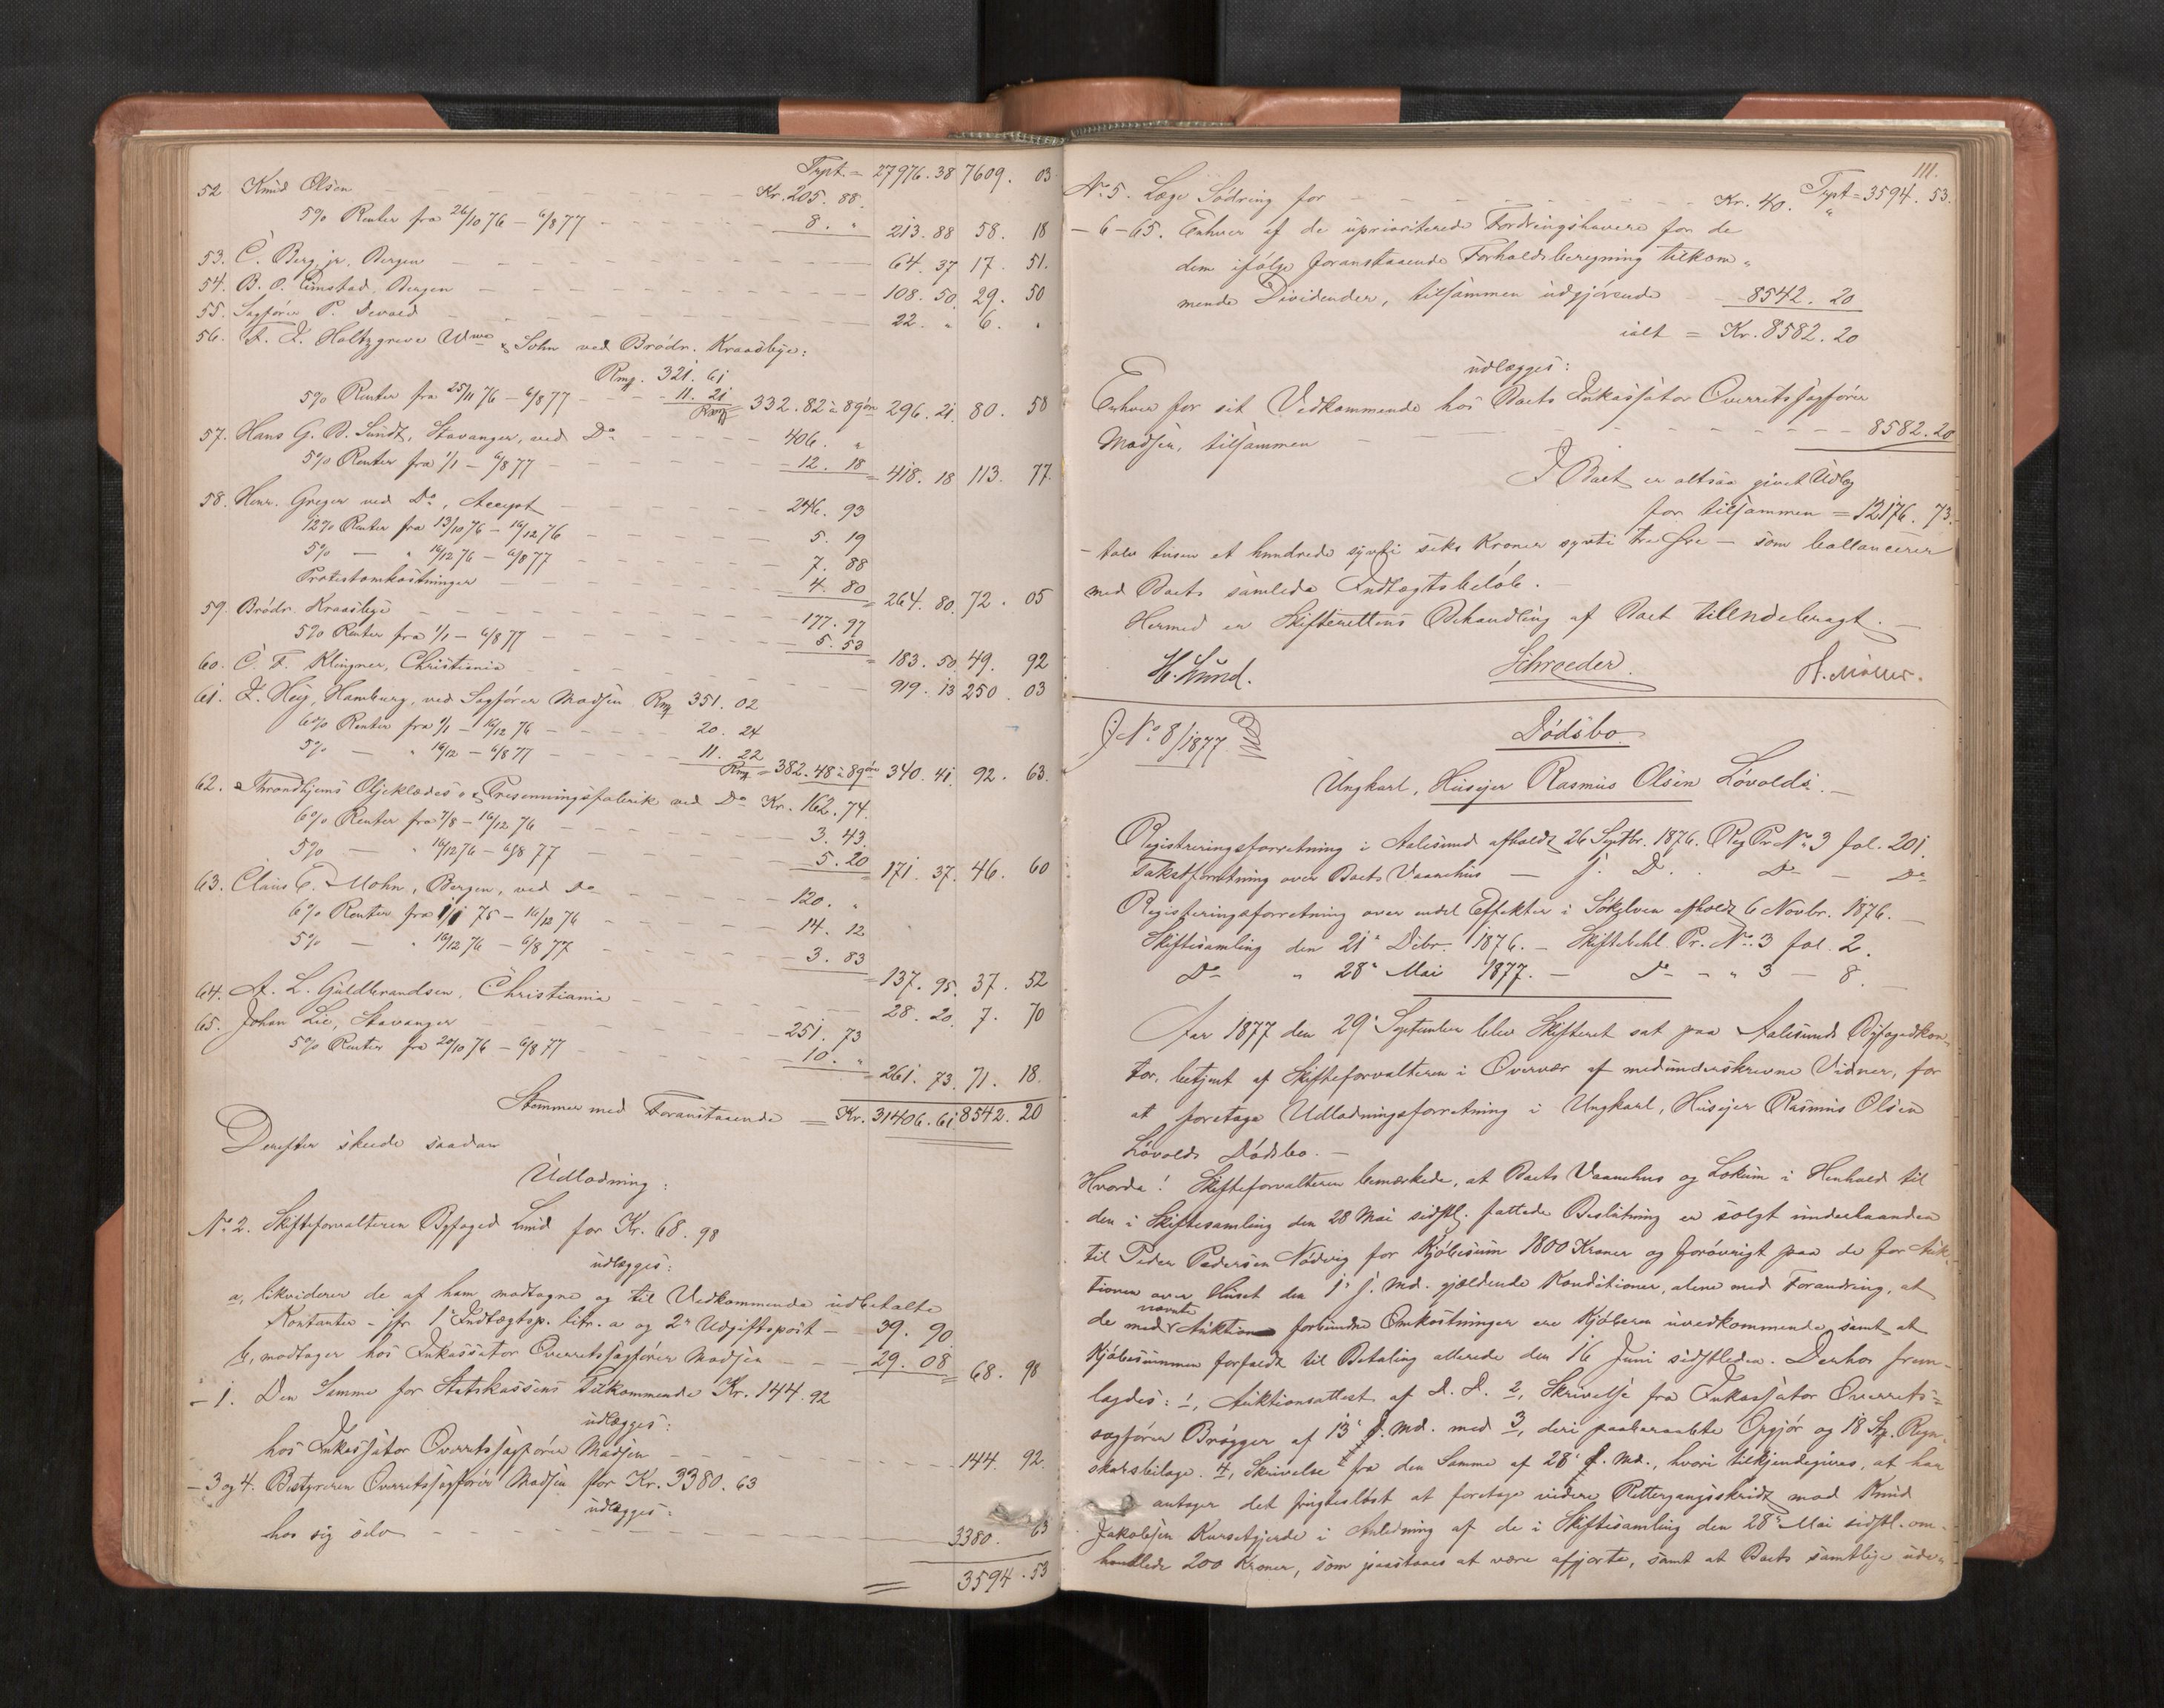 Trpt. = 27976.38 7609. 03
52 Knud Olsen Kr. 205. 88.
5% Renter fra 26/10 76 – 6/8 77 8. " 213. 88 58. 18
53. C. Berg jr. Bergen 64. 37 17. 51.
54. B. O. Bergen 108. 50. 29. 50
55. Sagfører P. Devold 22. " 6. "
56. F. F. Holtzgreve Wwe & Sohn ved Brødr. Kraasbye:
Rmg. 321. 61
5% Renter fra 25/11 76 – 6/8 77 11. 21
Rmg = 332. 82 à 89 øre 296. 21. 80. 58
57. Hans G. B. Sundt, Stavanger, ved Do 406. "
5% Renter fra 1/1 – 6/8 77 12. 18 = 418. 18 113. 77.
58. Henr. Greger ved Do, Accept 246. 93
12% Renter fra 13/10 76 – 16/12 76 5. 19
5% — " 16/12 76 – 6/8 77 7. 88
Protestomkostninger 4. 80 = 264. 80. 72. 05
59. Brødr. Kraasbye 177. 97
5% Renter fra 1/1 – 6/8 77 5. 53 = 183. 50. 49. 92
60. C. F. Klingner, Christiania 919. 13 250. 03
61. Hamburg, ved Sagfører Madsen Rmg 351. 02
6% Renter fra 1/1 – 16/12 76 20. 24
5% — " 16/12 – 6/8 77 11. 22
Rmg = 382. 48 à 89 øre 340. 41. 92. 63.
62. Throndhjems Oljeklædes- & Presenningsfabrik ved Do Kr. 162. 74.
6% Renter fra 7/8 – 16/12 76 3. 43.
5% — " 16/12 76 – 6/8 77 5. 20 = 171. 37. 46. 60
63. Claus C. Mohn, Bergen, ved Do 120. "
6% Renter fra 1/1 75 – 16/12 76 14. 12
5% — " 16/12 76 – 6/8 77 3. 83 = 137. 95. 37. 52
64. A. L. Guldbrandsen, Christiania 28. 20. 7. 70
65. Johan Lie, Stavanger 251. 73
5% Renter fra 20/10 76 – 6/8 77 10. " = 261. 73. 71. 18.
Stemmer med Foranstaaende = Kr. 31406. 61 8542. 20
Derefter skeede saadan
Udlodning:
No 2. Skifteforvalteren Byfoged Lund for Kr. 68. 98
udlægges:
a, likviderer de af ham modtagne og til Vedkommende udbetalte
Kontanter – jfr. 1e Indtægtsp. litr. a og 2n Udgiftspost – 39. 90
b, modtager hos Inkassator Overretssagfører Madsen 29. 08 = 68. 98
– 1. Den Samme for Statskassens Tilkommende Kr. 144. 92
udlægges:
hos Inkassator Overretssagfører Madsen 144. 92.
– 3 og 4. Bestyreren Overretssagfører Madsen for Kr. 3380. 63
udlægges:
hos sig selv 3380. 63
= 3594. 53
111.
Trpt = 3594. 53.
No 5. Læge Sødring for Kr. 40. "
– 6 – 65. Enhver af de uprioriterede Fordringshavere for de
dem ifølge foranstaaende Forholdsberegning tilkom-
mende Dividender, tilsammen udgjørende 8542. 20
ialt = Kr. 8582. 20
udlægges:
Enhver for sit Vedkommende hos Boets Inkassator Overretssagfører
Madsen, tilsammen 8582. 20
I Boet er altsaa givet Udlæg
for tilsammen = 12176. 73.
– tolv tusen et hundrede sytti seks Kroner sytti tre Øre – som ballancerer
med Boets samlede Indtægtsbeløb. –
Hermed er Skifterettens Behandling af Boet tilendebragt. –
H. Lund. Schroeder. H. Møller.
J No 8/1877
Dødsbo.
Ungkarl, Huseier Rasmus Olsen Løvolds. –
Registreringsforretning i Aalesund afholdt 26 Septbr. 1876. Reg Pr No 3 fol. 201.
Taxtforretning over Boets Vaanehus — s. D. Do – Do
Registreringsforretning over endel Effekter i Søkelven afholdt 6 Novbr. 1876. –
Skiftesamling den 21e Debr. 1876. – Skiftebehl. Pr. No 3 fol. 2.
Do " 28e Mai 1877. – Do – " 3 – 8. –
Aar 1877 den 29e September blev Skifteret sat paa Aalesunds Byfogedkon-
tor, betjent af Skifteforvalteren i Overvær af medunderskrevne Vidner, for
at foretage Udlodningsforretning i Ungkarl, Huseier Rasmus Olsen
Løvolds Dødsbo. –
Hvorda! Skifteforvalteren bemærkede, at Boets Vaanehus og Lokum i Henhold til
den i Skiftesamling den 28 Mai sidstl. fattede Beslutning er solgt underhaanden
til Peder Pedersen Nødvig for Kjøbesum 1800 Kroner og forøvrigt paa de for Auk-
tionen over Huset den 1e f. Md. gjældende Konditioner, alene med Forandring, at
de med nævnte Auktion forbundne Omkostninger ere Kjøberen uvedkommende, samt at
Kjøbesummen forfaldt til Betaling allerede den 16 Juni sidstleden. Derhos frem-
lagdes: 1, Auktionsattest af D. D. 2, Skrivelse fra Inkassator Overrets-
sagfører Brøgger af 13e f. Md. med 3, deri paaberaabte Opgjør og 18 Stp. Regn-
skabsbilage. 4, Skrivelse fra den Samme af 28e f. Md., hvori tilkjendegives, at han
antager det frugtesløst at foretage videre Rettergangsskridt mod Knud
Jakobsen Kursetgjerde i Anledning af de i Skiftesamling den 28e Mai sidstl. om-
handlede 200 Kroner, som paastaaes at være afgjorte, samt at Boets samtlige ude-